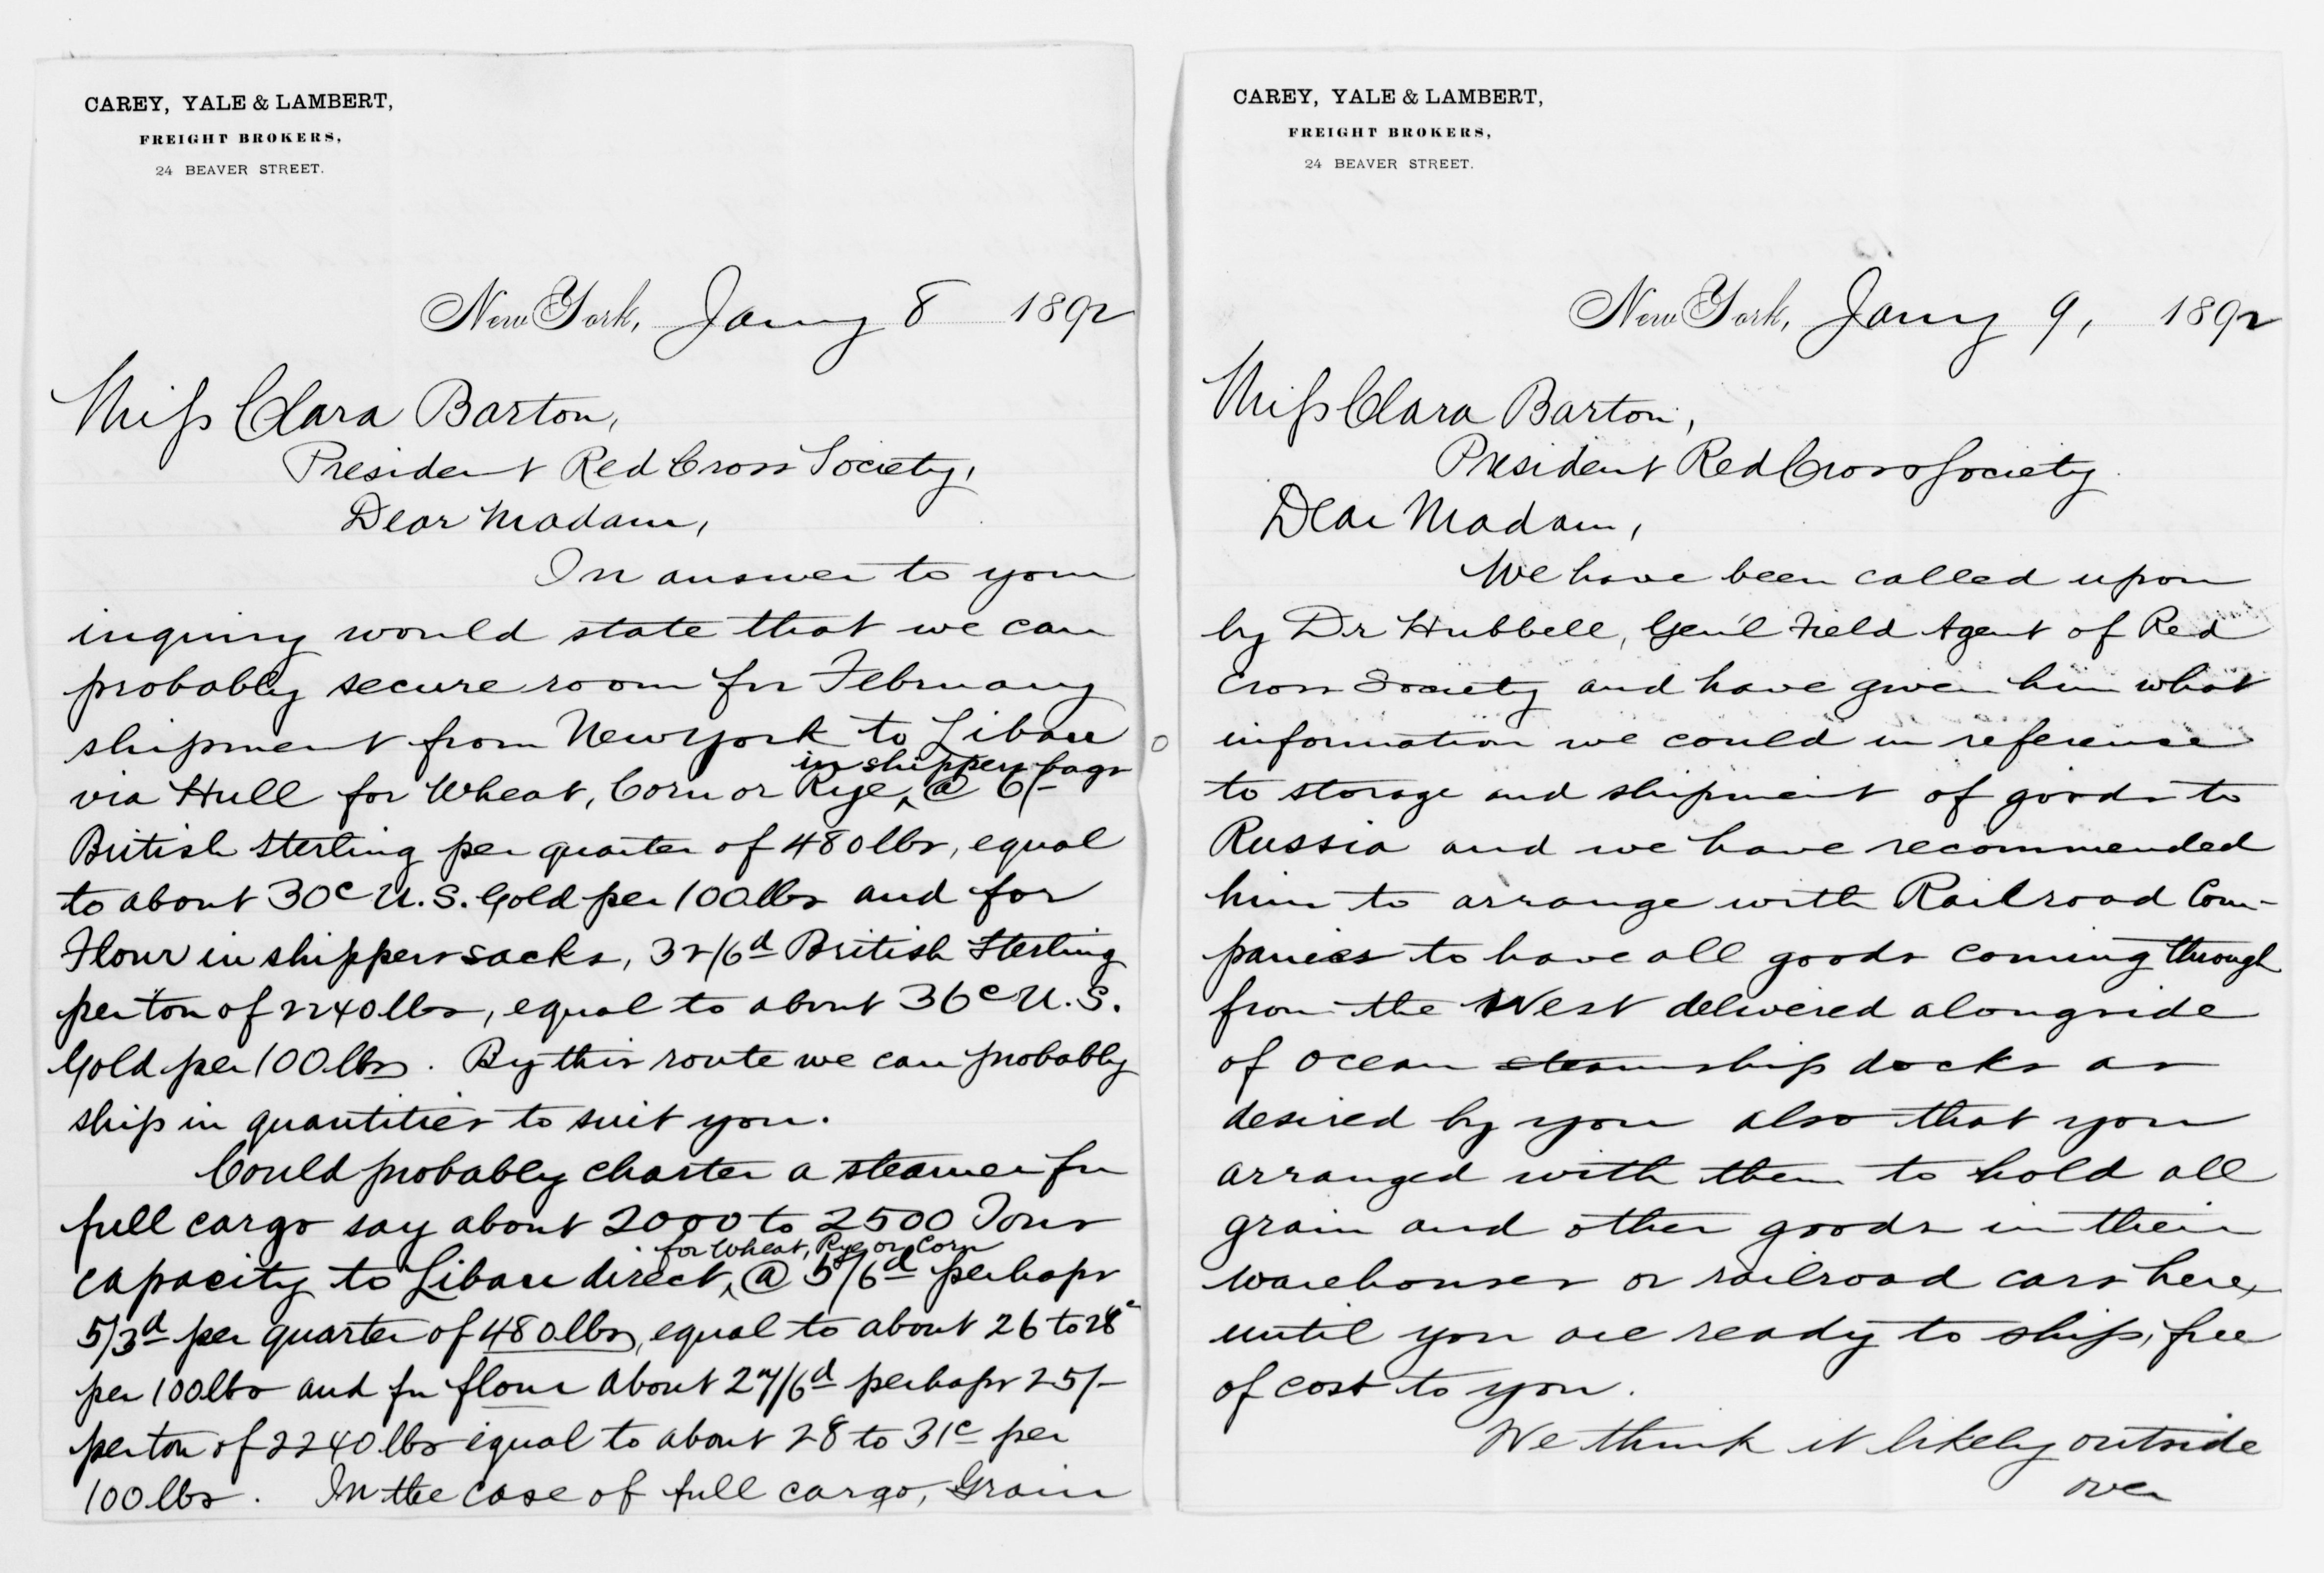 CAREY, YALE & LAMBERT,
FREIGHT BROKERS,
24 BEAVER STREET.
New York, Jany 8 1892
Miss Clara Barton,
President Red Cross Society,
Dear Madam,
In answer to your
inquiry would state that we can
probably secure room for February
shipment from New York to Libau
in shippers bags
via Hull for Wheat, Corn or Rye, @ 6/-
British Sterling per quarter of 480 lbs, equal
to about 30c U.S. Gold per 100 lbs and for
Flour in shippers sacks, 32/6d British Sterling
per ton of 2240 lbs, equal to about 36c U.S.
Gold per 100 lbs. By this route we can probably
ship in quantities to suit you.
Could probably charter a steamer for
full cargo say about 2000 to 2500 Tons
for Wheat, Rye or Corn
capacity to Libau direct, @ 5/6d perhaps
5/3d per quarter of 480 lbs, equal to about 26 to 28c
per 100 lbs and for flour about 27/6d perhaps 25/-
per ton of 2240 lbs equal to about 28 to 31c per
100 lbs. In the case of full cargo, Grain
CAREY, YALE & LAMBERT,
FREIGHT BROKERS,
24 BEAVER STREET.
New York, Jany 9, 1892
Miss Clara Barton,
President Red Cross Society.
Dear Madam,
We have been called upon
by Dr Hubbell, Gen'l Field Agent of Red
Cross Society and have given him what
information we could in reference
to storage and shipment of goods to
Russia and we have recommended
him to arrange with Railroad Com-
panies to have all goods coming through
from the West delivered alongside
of ocean steamship docks as
desired by you also that you
arranged with them to hold all
grain and other goods in their
warehouses or railroad cars here,
until you are ready to ship, free
of cost to you.
We think it likely outside
over